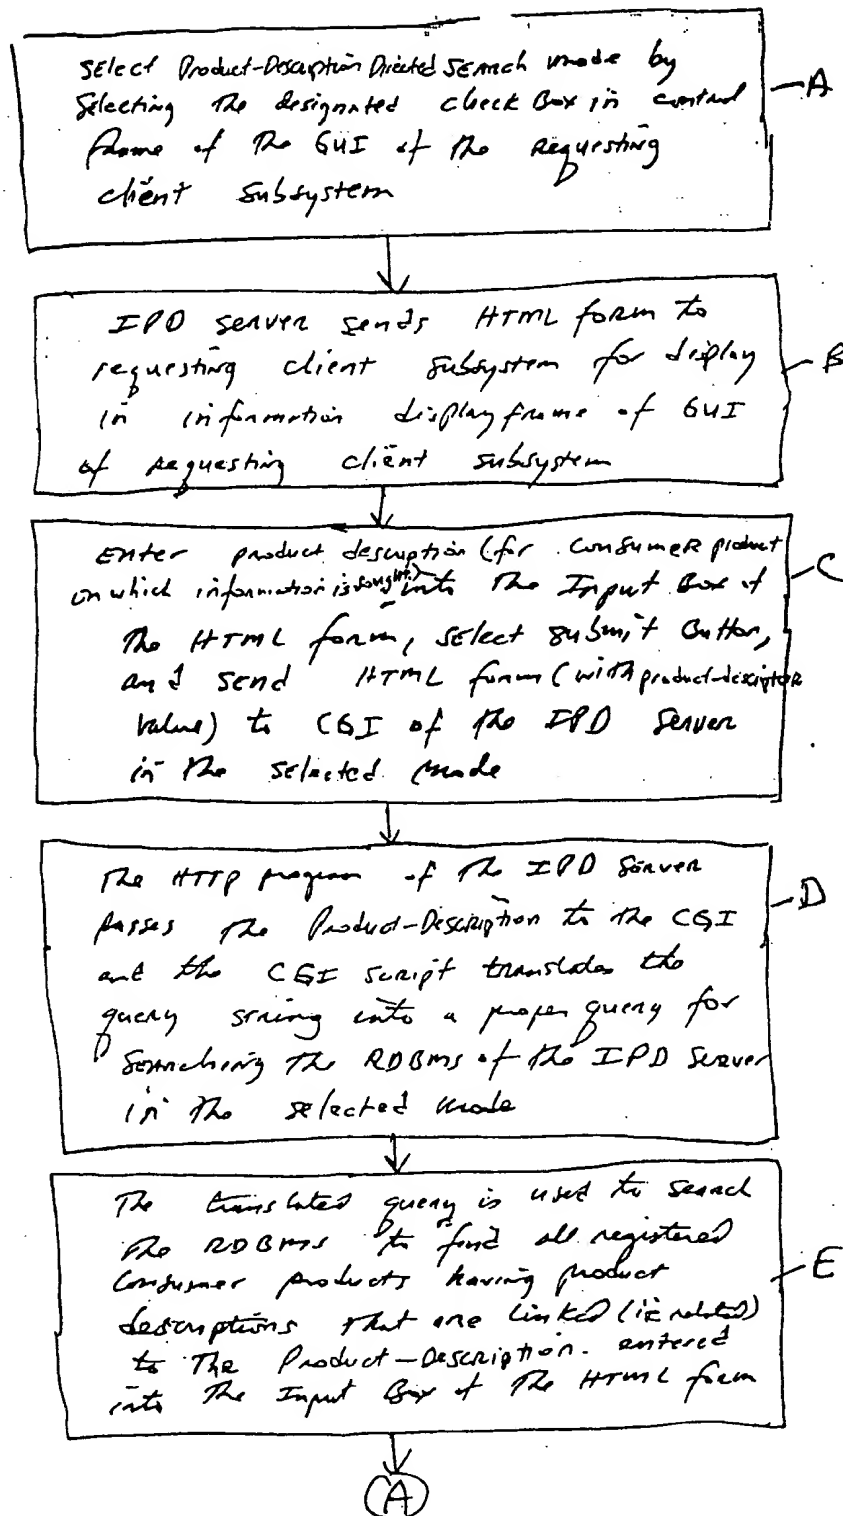 Select Product-Description Directed Search mode by
Selecting the designated check Box in control
frame of the GUI of the requesting
client subsystem
A
IPD server sends HTML form to
requesting client subsystem for display
in information display frame of GUI
of requesting client subsystem
B
Enter product description (for consumer product
on which information is sought) into the Input Box of
the HTML form, select submit Button,
and send HTML form (with product-descriptor
value) to CGI of the IPD Server
in the selected mode
C
The HTTP program of the IPD Server
passes the Product-Description to the CGI
and the CGI script translates the
query string into a proper query for
searching the RDBMS of the IPD Server
in the selected mode
D
The translated query is used to search
the RDBMS to find all registered
consumer products having product
descriptions that are linked (ie related)
to the Product-Description entered
into the Input Box of the HTML form
E
A